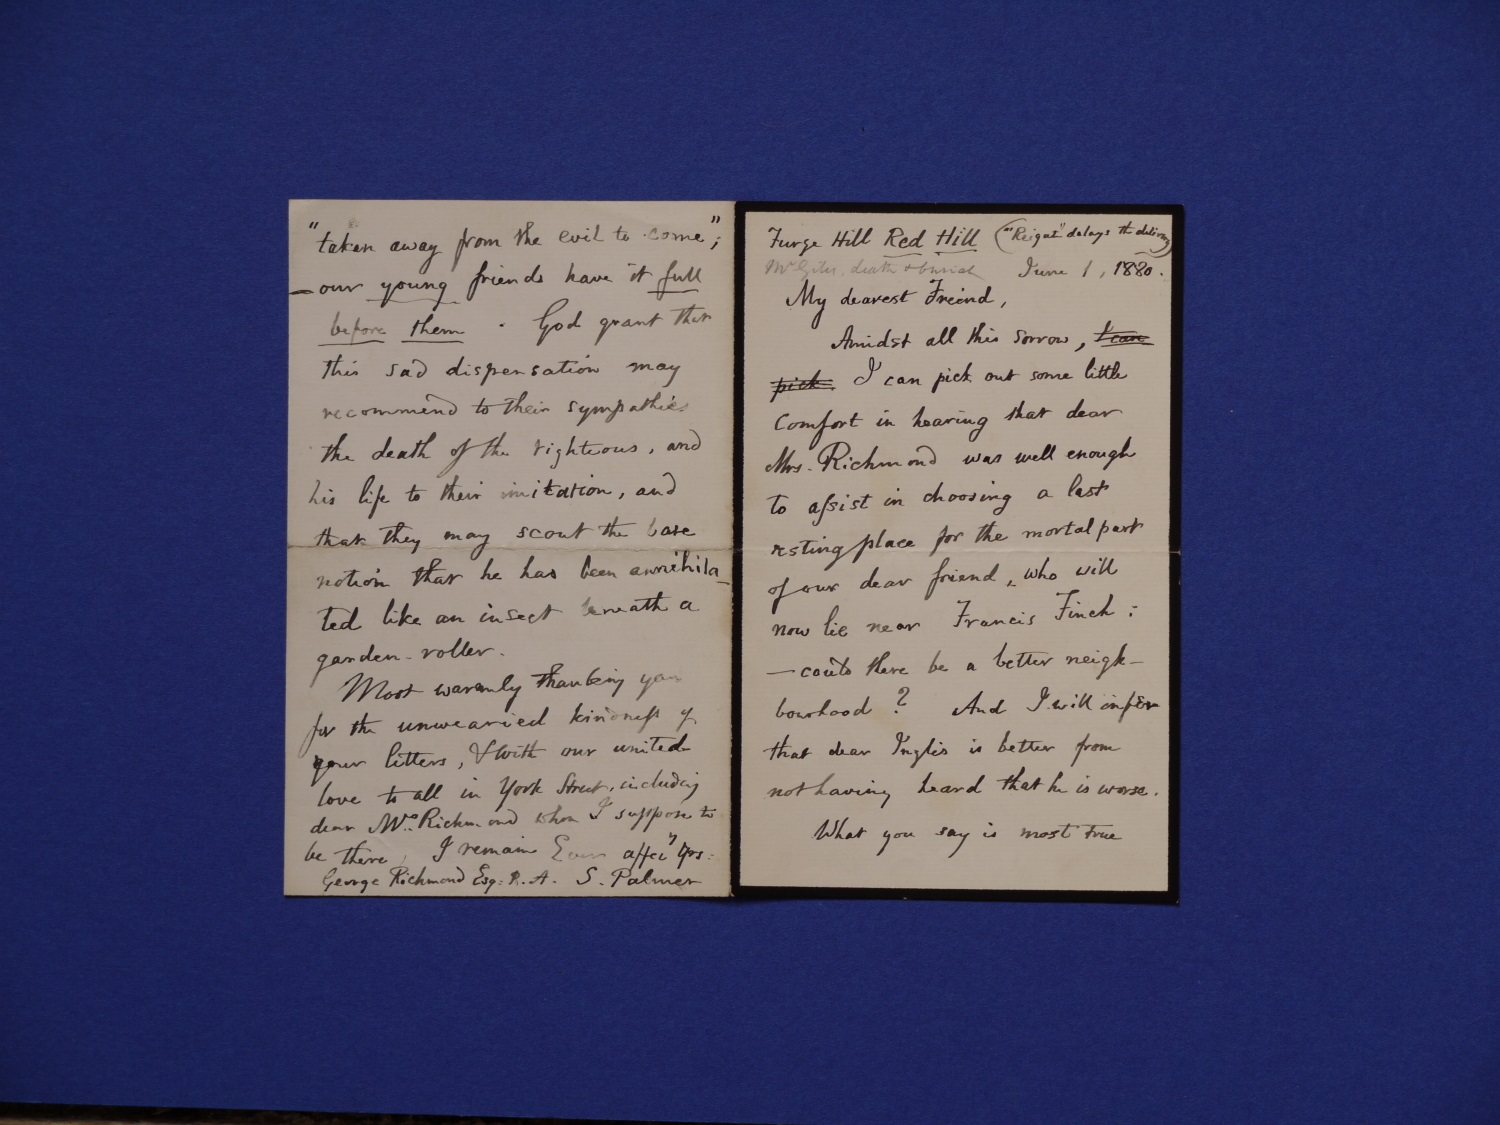 Furze Hill Red Hill ("Reigate" delays the delivery)
Mr Giles, death & burial June 1, 1880.
My dearest Friend,
Amidst all this sorrow, I can
pick I can pick out some little
comfort in hearing that dear
Mrs. Richmond was well enough
to assist in choosing a last
resting place for the mortal part
of our dear friend, who will
now lie near Francis Finch :
— could there be a better neigh-
bourhood ? And I will infer
that dear Inglis is better from
not having heard that he is worse.
What you say is most true
"taken away from the evil to come";
— our young friends have it full
before them. God grant that
this sad dispensation may
recommend to their sympathies
the death of the righteous, and
his life to their imitation, and
that they may scout the base
notion that he has been annihila-
ted like an insect beneath a
garden-roller.
Most warmly thanking you
for the unwearied kindness of
your letters, & with our united
love to all in York Street, including
dear Mrs. Richmond whom I suppose to
be there, I remain Ever affecly Yrs:
George Richmond Esq: R.A. S. Palmer